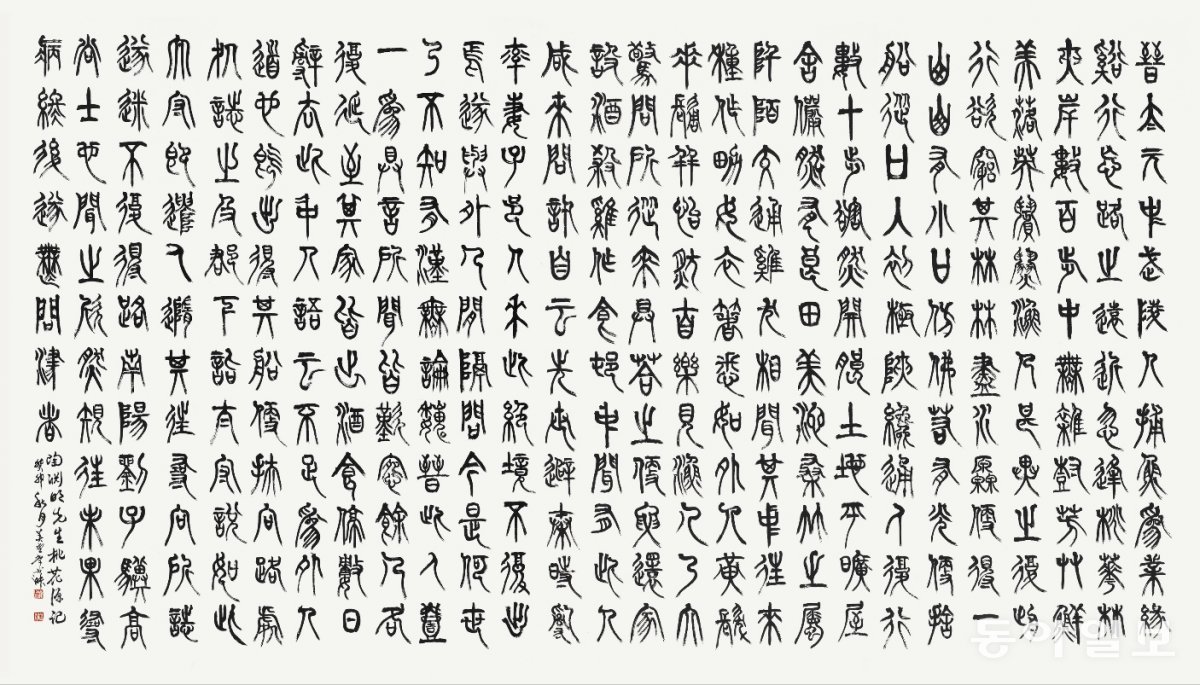 晉太元中武陵人捕魚為業緣
谿行忘路之遠近忽逢桃華林
夾岸數百步中無雜樹芳艸鮮
美落英繽紛漁人甚異之復前
行欲窮其林林盡水源便得一
山山有小口彷彿若有光便捨
船從口入初極狹纔通人復行
數十步豁然開朗土地平曠屋
舍儼然有良田美池桑竹之屬
阡陌交通雞犬相聞其中往來
種作男女衣著悉如外人黃髮
垂髫並怡然自樂見漁人乃大
驚問所從來具答之便要還家
設酒殺雞作食邨中聞有此人
咸來問訊自云先世避秦時亂
率妻子邑人來此絕境不復出
焉遂與外人間隔問今是何世
乃不知有漢無論魏晉此人壹
一為具言所聞皆歎惋餘人各
復延至其家皆出酒食停數日
辭去此中人語云不足為外人
道也既出得其船便扶向路處
處誌之及郡下詣太守說如此
太守即遣人隨其往尋向所誌
遂迷不復得路南陽劉子驥高
尚士也聞之欣然規往未果尋
病終後遂無問津者
陶淵明先生桃花源記
癸卯秋月
동아일보